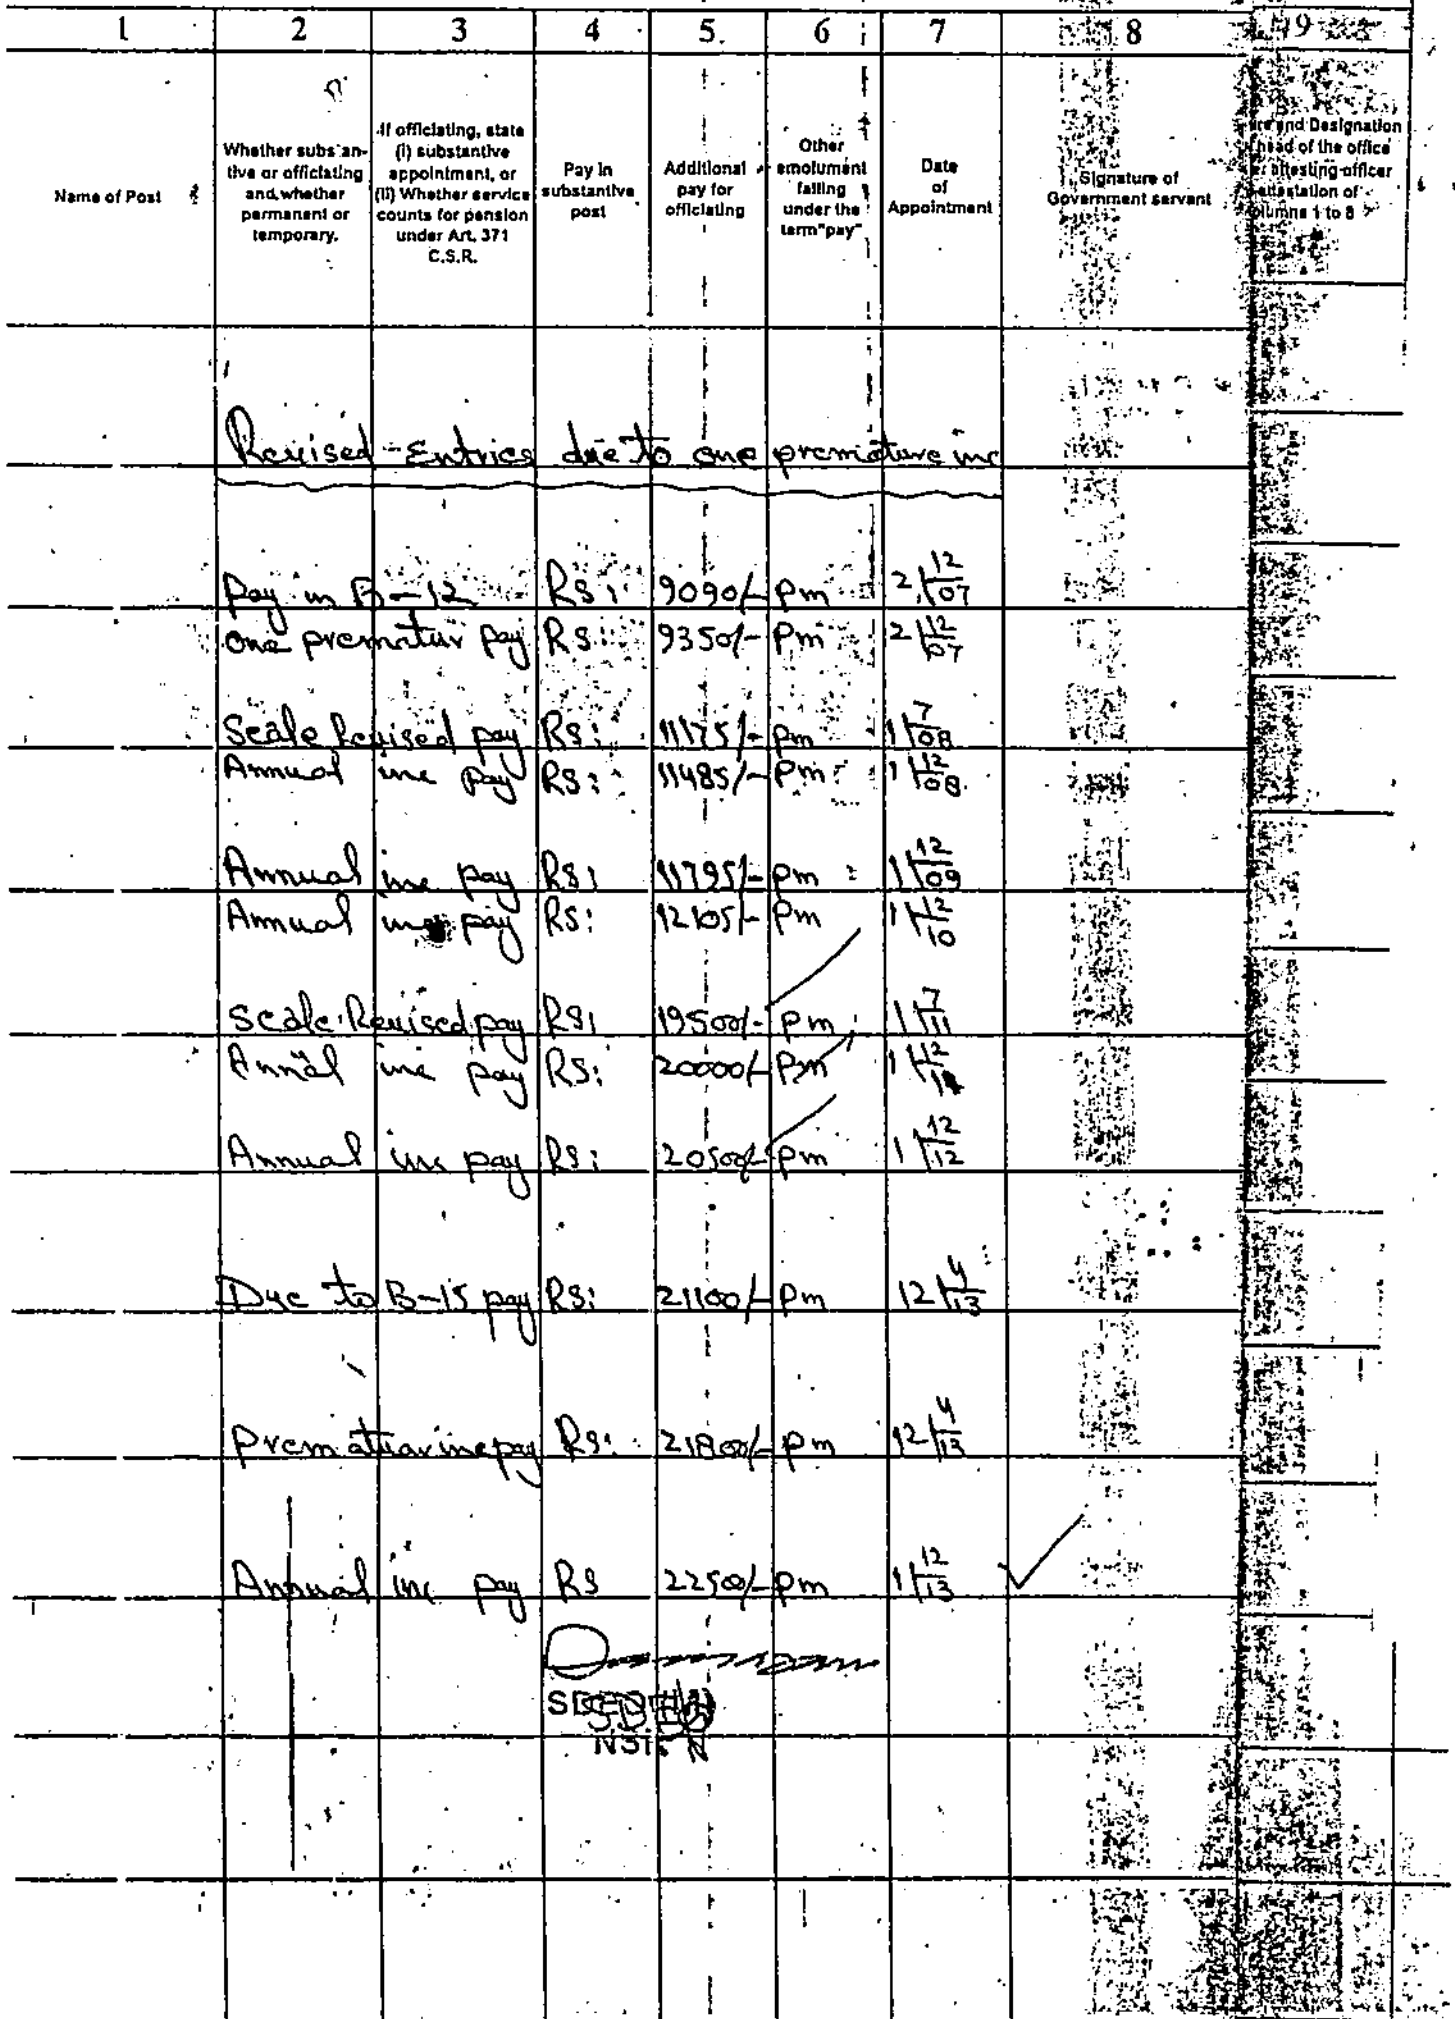 1 2 3 4 5 6 7 8 9
Name of Post
Whether substan-
tive or officiating
and whether
permanent or
temporary.
If officiating, state
(i) substantive
appointment, or
(ii) Whether service
counts for pension
under Art. 371
C.S.R.
Pay in
substantive
post
Additional
pay for
officiating
Other
emolument
falling
under the
term "pay"
Date
of
Appointment
Signature of
Government servant
and Designation
head of the office
attesting officer
attestation of
1 to 8
Revised - Entries due to one premature inc
Pay in B-12 Rs: 9090/- pm 2/12/07
one prematur pay Rs: 9350/- pm 2/12/07
Scale Revised pay Rs: 11175/- pm 1/7/08
Annual inc pay Rs: 11485/- pm 1/12/08
Annual inc pay Rs: 11795/- pm 1/12/09
Annual inc pay Rs: 12105/- pm 1/12/10
Scale Revised pay Rs: 19500/- pm 1/7/11
Annal inc pay Rs: 20000/- pm 1/12/11
Annual inc pay Rs: 20500/- pm 1/12/12
Due to B-15 pay Rs: 21100/- pm 12/4/13
Prematuar inc pay Rs: 21800/- pm 12/4/13
Annual inc pay Rs 22500/- pm 1/12/13